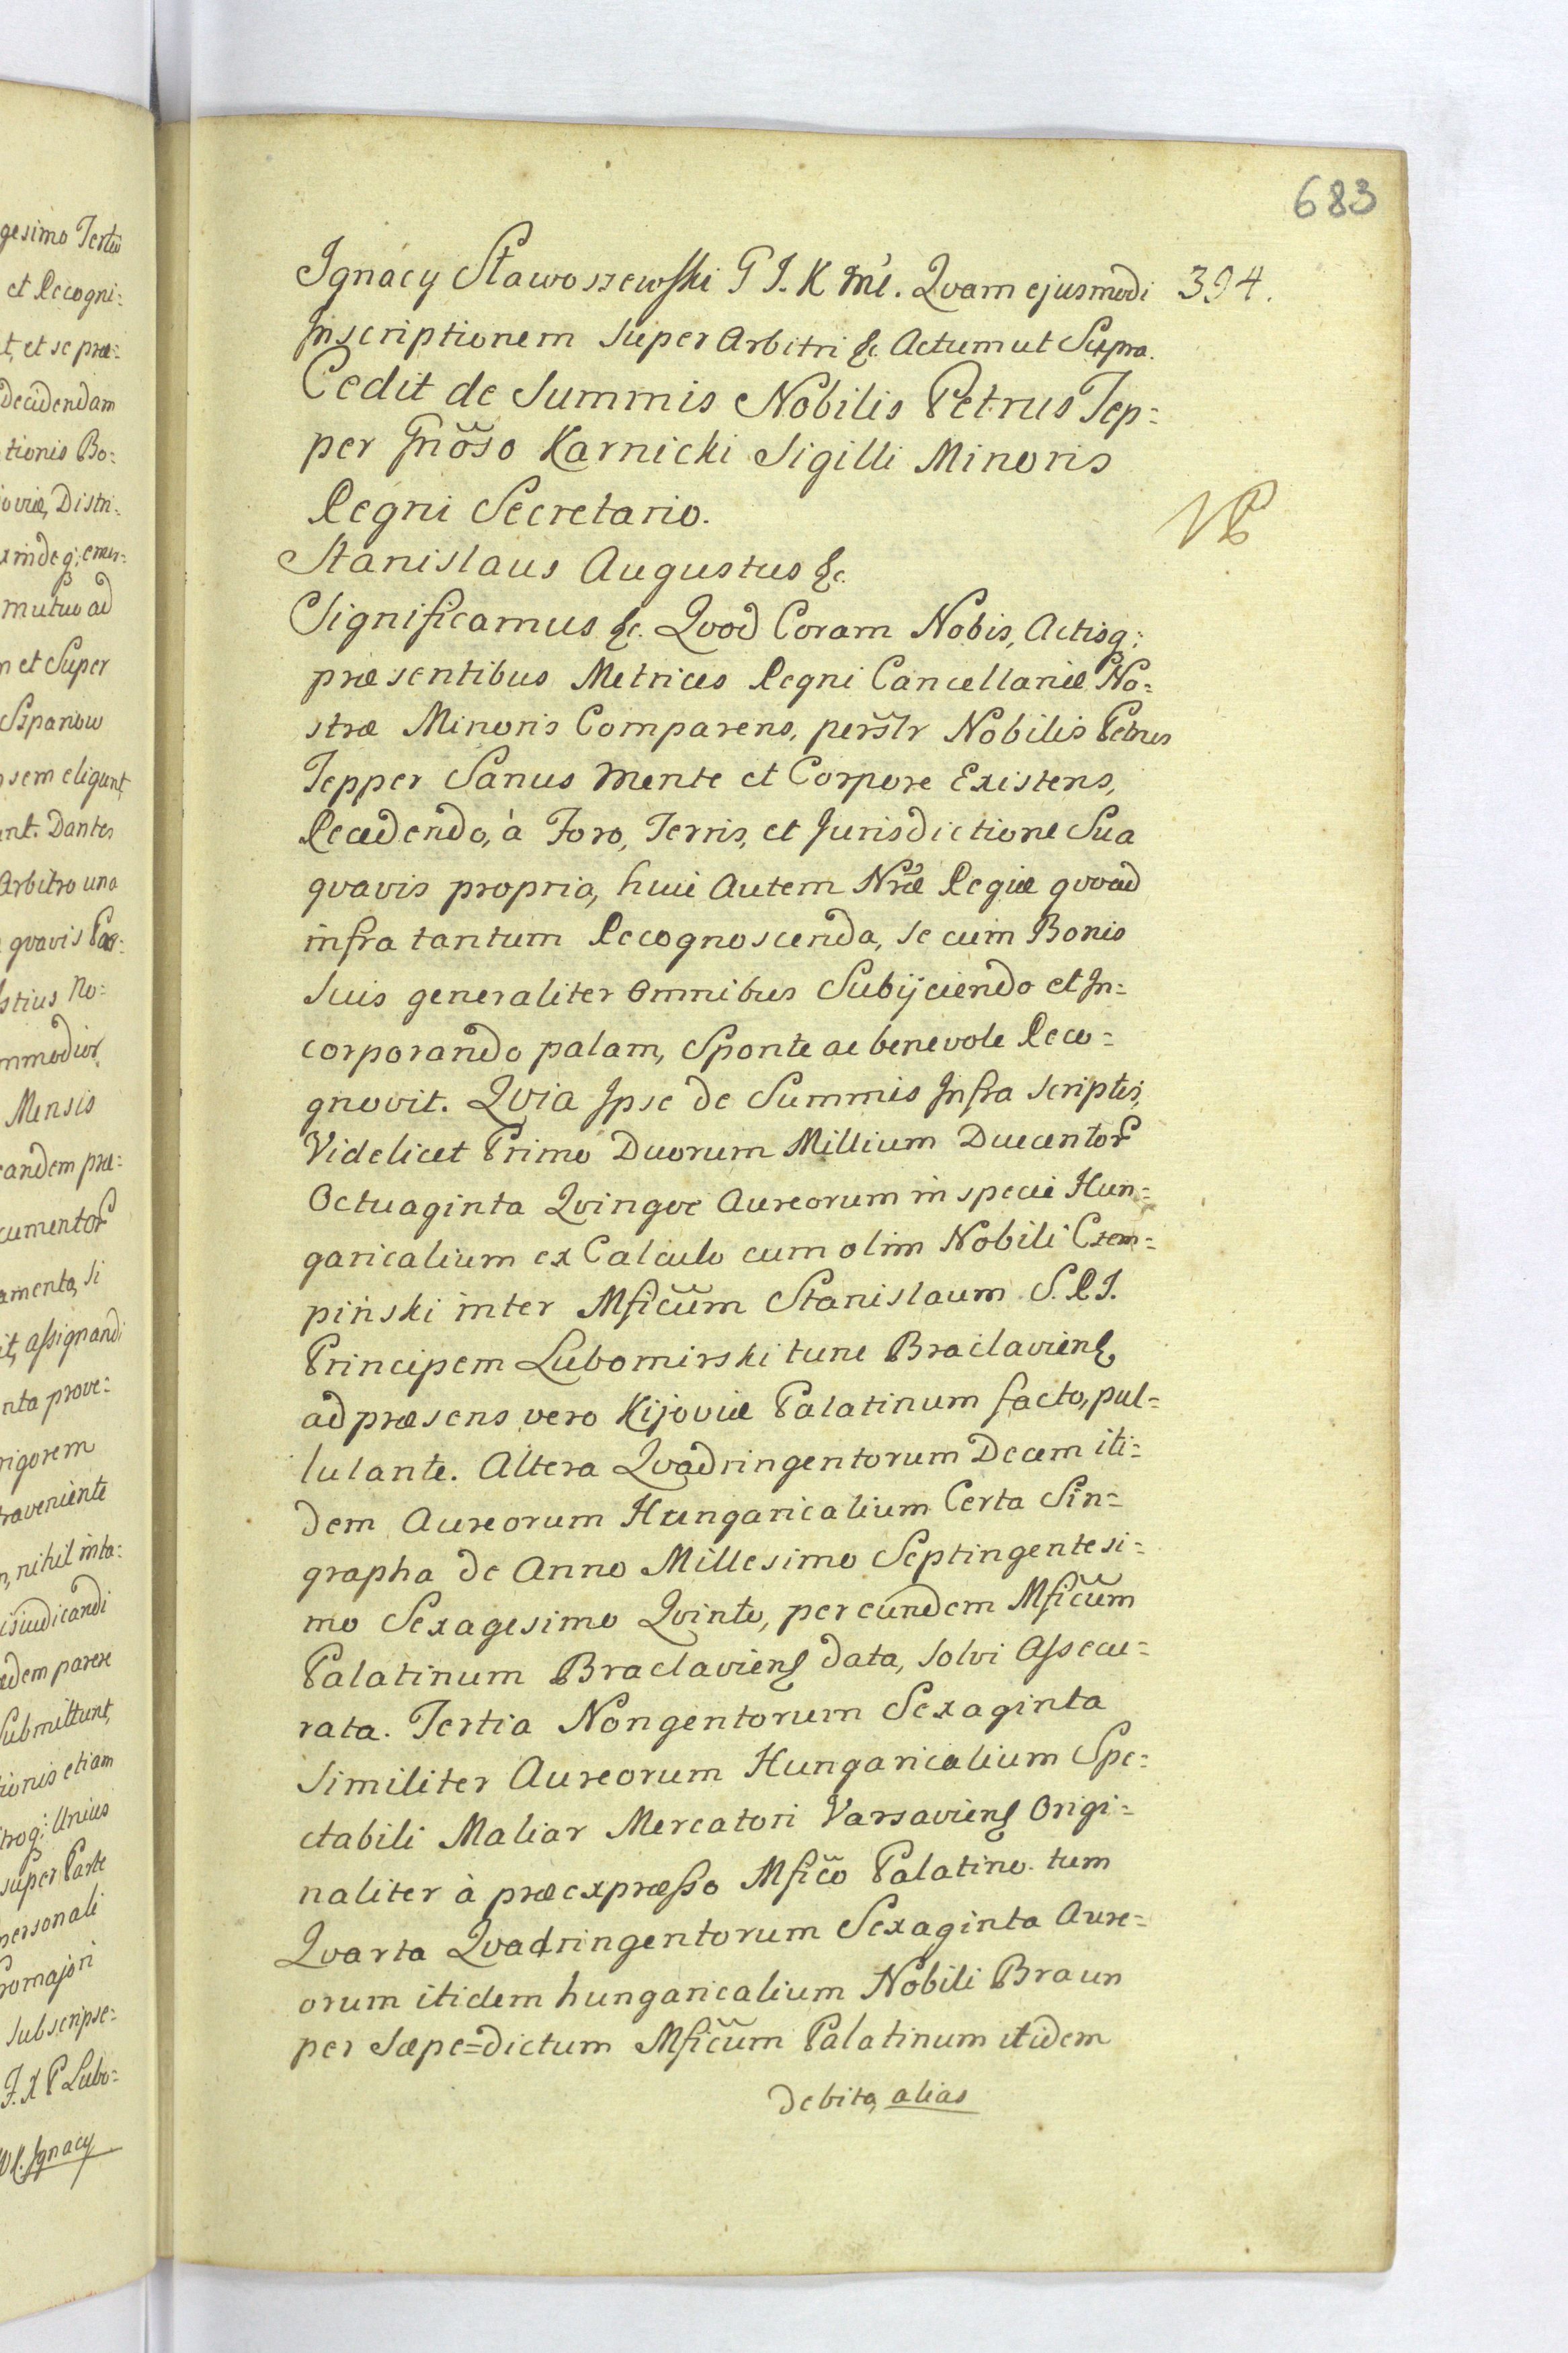 683
394.
Ignacy Sławoszewski P J. K mć. Qvam ejusmodi
Inscriptionem super Arbitri &c. Actum ut Supra.
Cedit de Summis Nobilis Petrus Tep=
per Gnõso Karnicki Sigilli Minoris
Regni Secretario.
Stanislaus Augustus &c.
Significamus &c. Qvod Coram Nobis, Actisq;
præsentibus Metrices Regni Cancellariæ No=
stræ Minoris Comparens, persłr Nobilis Petrus
Tepper Sanus mente et Corpore Existens,
Recedendo, à Foro, Terris, et Jurisdictione Sua
qvavis propria, huic Autem Nræ Regiæ qvoad
infra tantum Recognoscenda, se cum Bonis
Suis generaliter Omnibus Subijciendo et In=
corporando palam, Sponte ac benevole Reco=
gnovit. Qvia Ipse de Summis Infra scriptis,
Videlicet Primo Duorum Millium Ducentor
Octuaginta Qvinqve Aureorum in specie Hun=
garicalium ex Calculo cum olim Nobili Czem=
piński inter Mficum Stanislaum S. R J.
Principem Lubomirski tunc Braclaviens
ad præsens vero Kijoviæ Palatinum facto, pul=
lulante. Altera Qvadringentorum Decem iti=
dem Aureorum Hungaricalium Certa Sin=
grapha de Anno Millesimo Septingentesi=
mo Sexagesimo Qvinto, per eundem Mficum
Palatinum Braclaviens data, solvi Assecu=
rata. Tertia Nongentorum Sexaginta
Similiter Aureorum Hungaricalium Spe=
ctabili Maliar Mercatori Varsaviens Origi=
naliter à præexpræsso Mfico Palatino. tum
Qvarta Qvadringentorum Sexaginta Aure=
orum itidem hungaricalium Nobili Braun
per Sæpe=dictum Mficum Palatinum itidem
debita, alias
gesimo Tertio
et Recogni:
t, et se præ:
decidendam
tionis Bo:
oviæ, Distri:
mutuo ad
et Super
Szpanow
sem eligunt
nt. Dantes
Arbitro uno
qvavis Par:
stius No=
mmodior
Mensis
eandem præ:
cumentor
amenta, si
it, assignandi
nta prove:
rigorem
traveniente
n, nihil inta:
isiudicandi
edem parere
Submittunt,
ionis etiam
troq; Unius
super Parte
personali
romajori
subscripse:
F. X P Lubo=
Ignacy